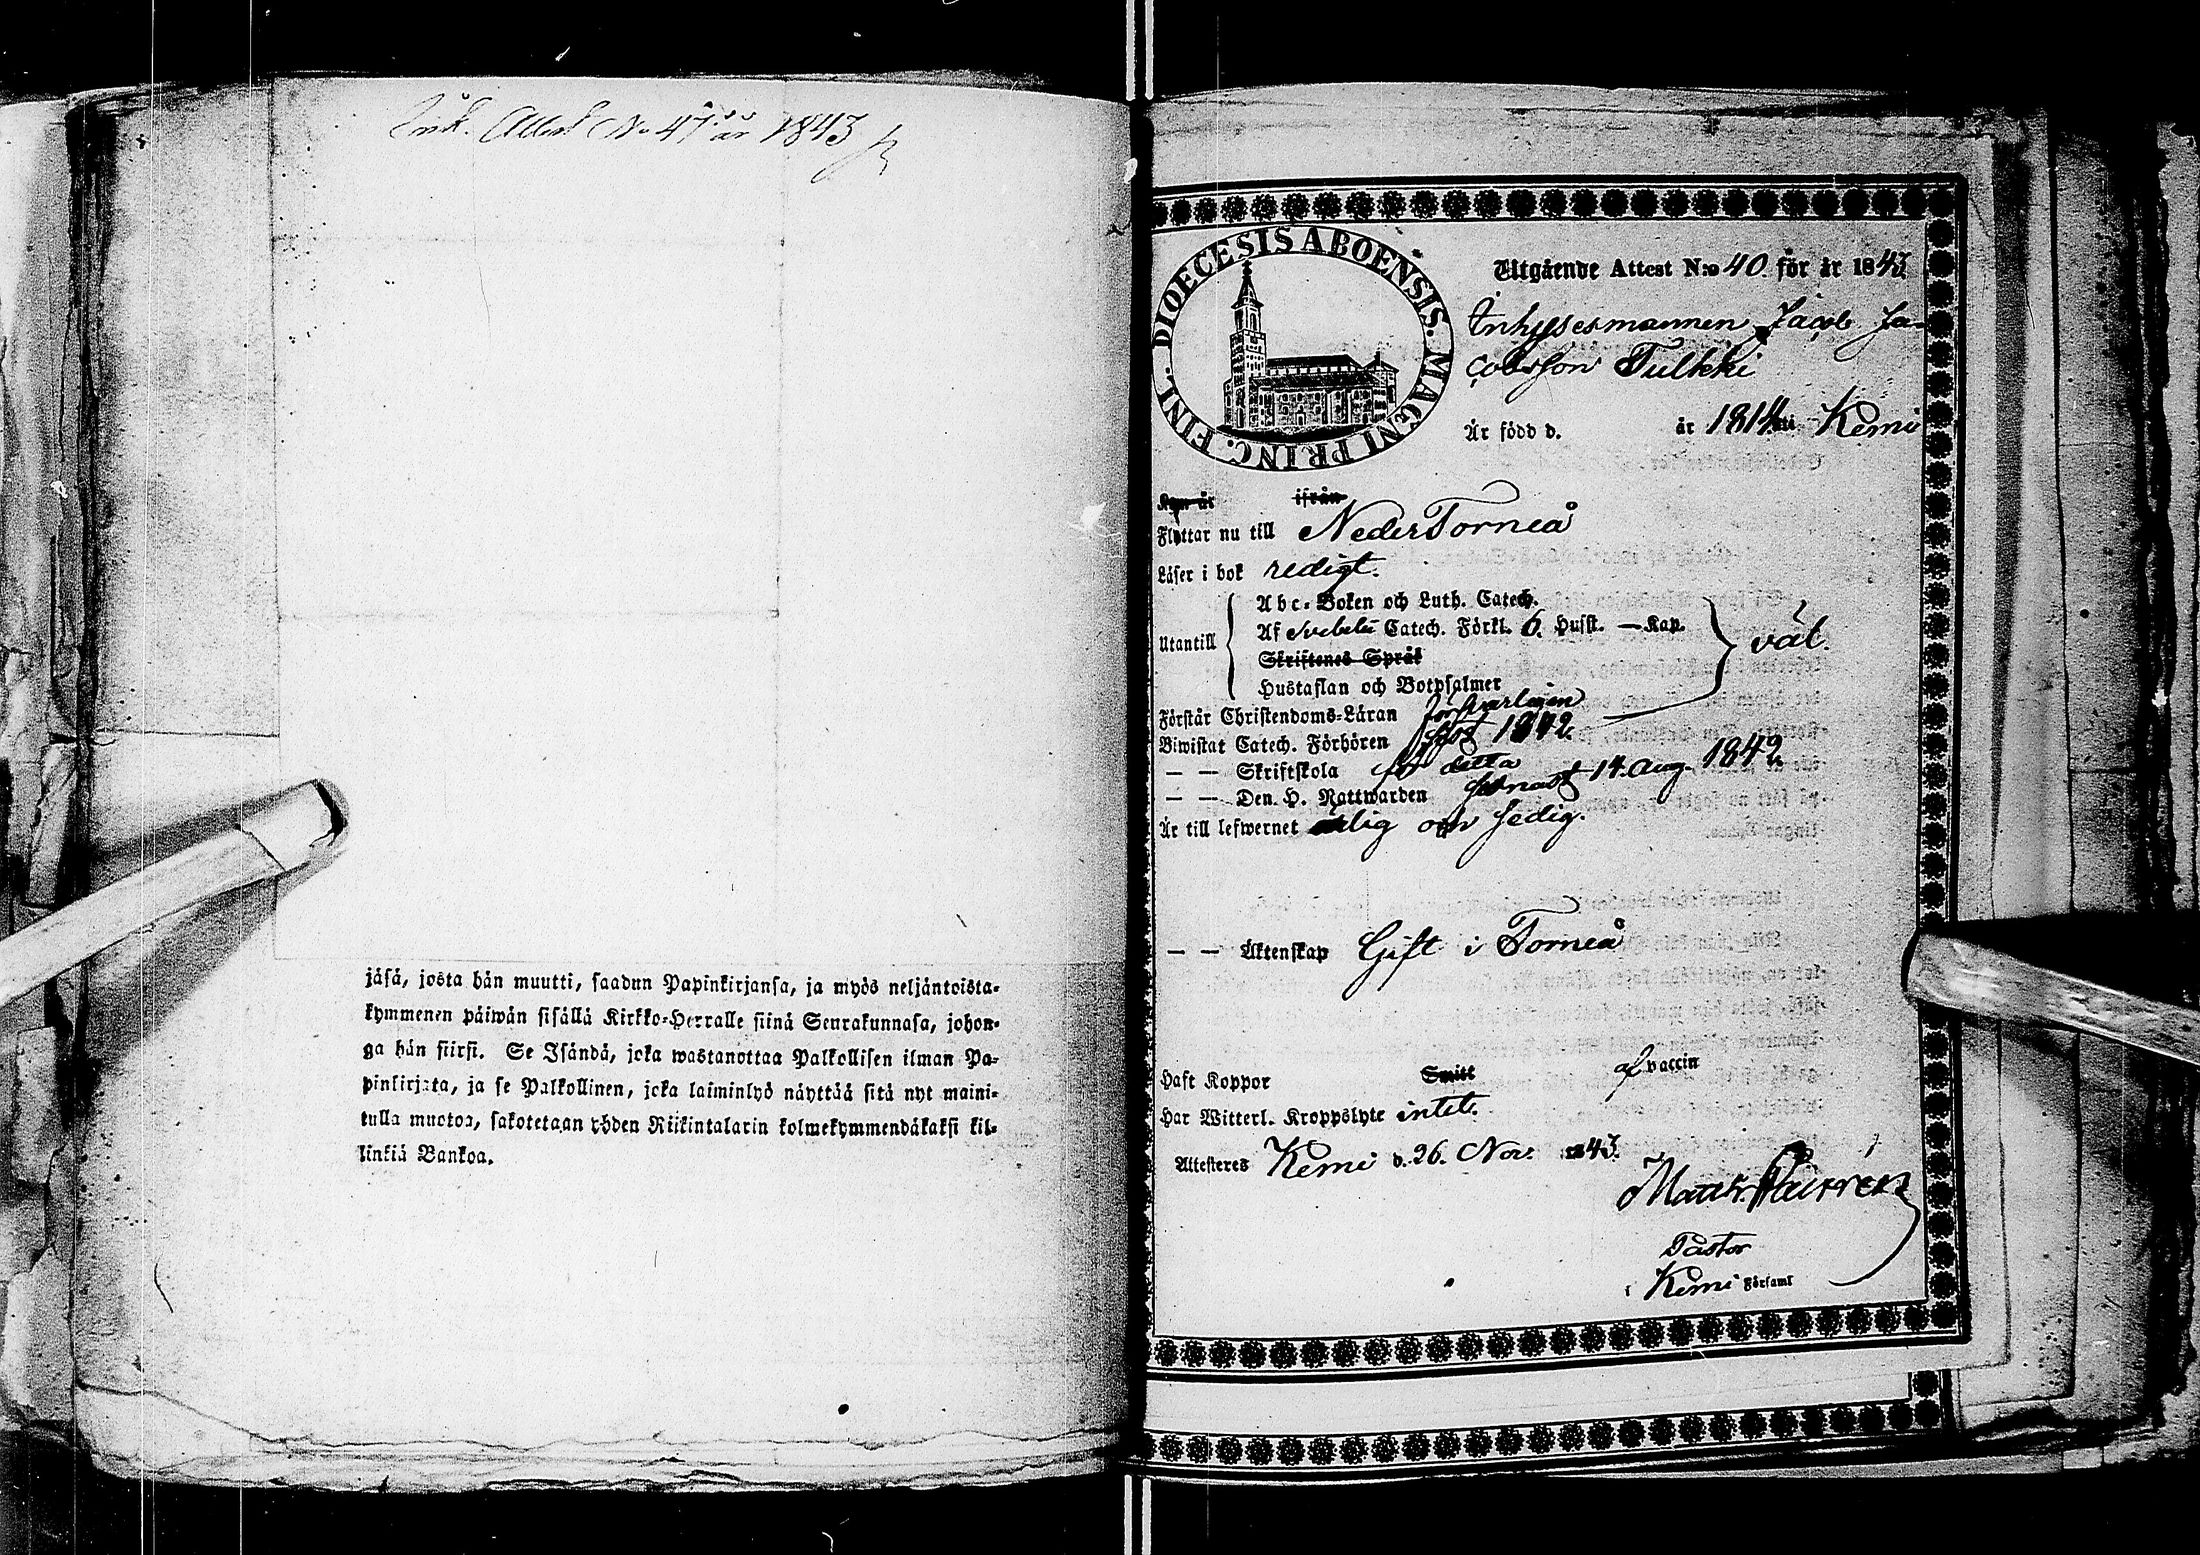 Ink. Attest No 47 år 1843
jäsä, josta hän muutti, saadun Papinkirjansa, ja myös neljäntoista-
kymmenen päiwän sisällä Kirkko-Herralle siinä Seurakunnasa, johon-
ga hän siirsi. Se Isändä, joka wastanottaa Palkollisen ilman Pa-
pinkirjata, ja se Palkollinen, joka laiminlyö näyttää sitä nyt maini-
tulla muotoa, sakotetaan yhden Riikintalarin kolmekymmendäkaksi kil-
linkiä Bankoa.
DIOECESIS ABOENSIS. MAGNI PRINC. FINL.
Utgående Attest N:o 40. för år 1843.
Inhysesmannen Jacob Ja-
cobsson Tulkki
Är född d. år 1814 i Kemi
Kom år ifrån
Flyttar nu till NederTorneå
Läser i bok redigt.
Utantill
Abc-Boken och Luth. Catech.
Af Svebelii Catech. Förkl. 6. Husst. — Kap.
Skriftenes Språk
Hustaflan och Botpsalmer
väl.
Förstår Christendoms-Läran försvarligen
Biwistat Catech. Förhören sist 1842.
— — Skriftskola för detta
— — Den H. Nattwarden senast 14. Aug. 1842.
Är till lefwernet ärlig och sedig.
— — Äktenskap Gift i Torneå
Haft Koppor Smitt af vaccin
Har Witterl. Kroppslyte intet.
Attesteres Kemi d. 26. Nov. 1843.
Matth.
Pastor
i Kemi Församl